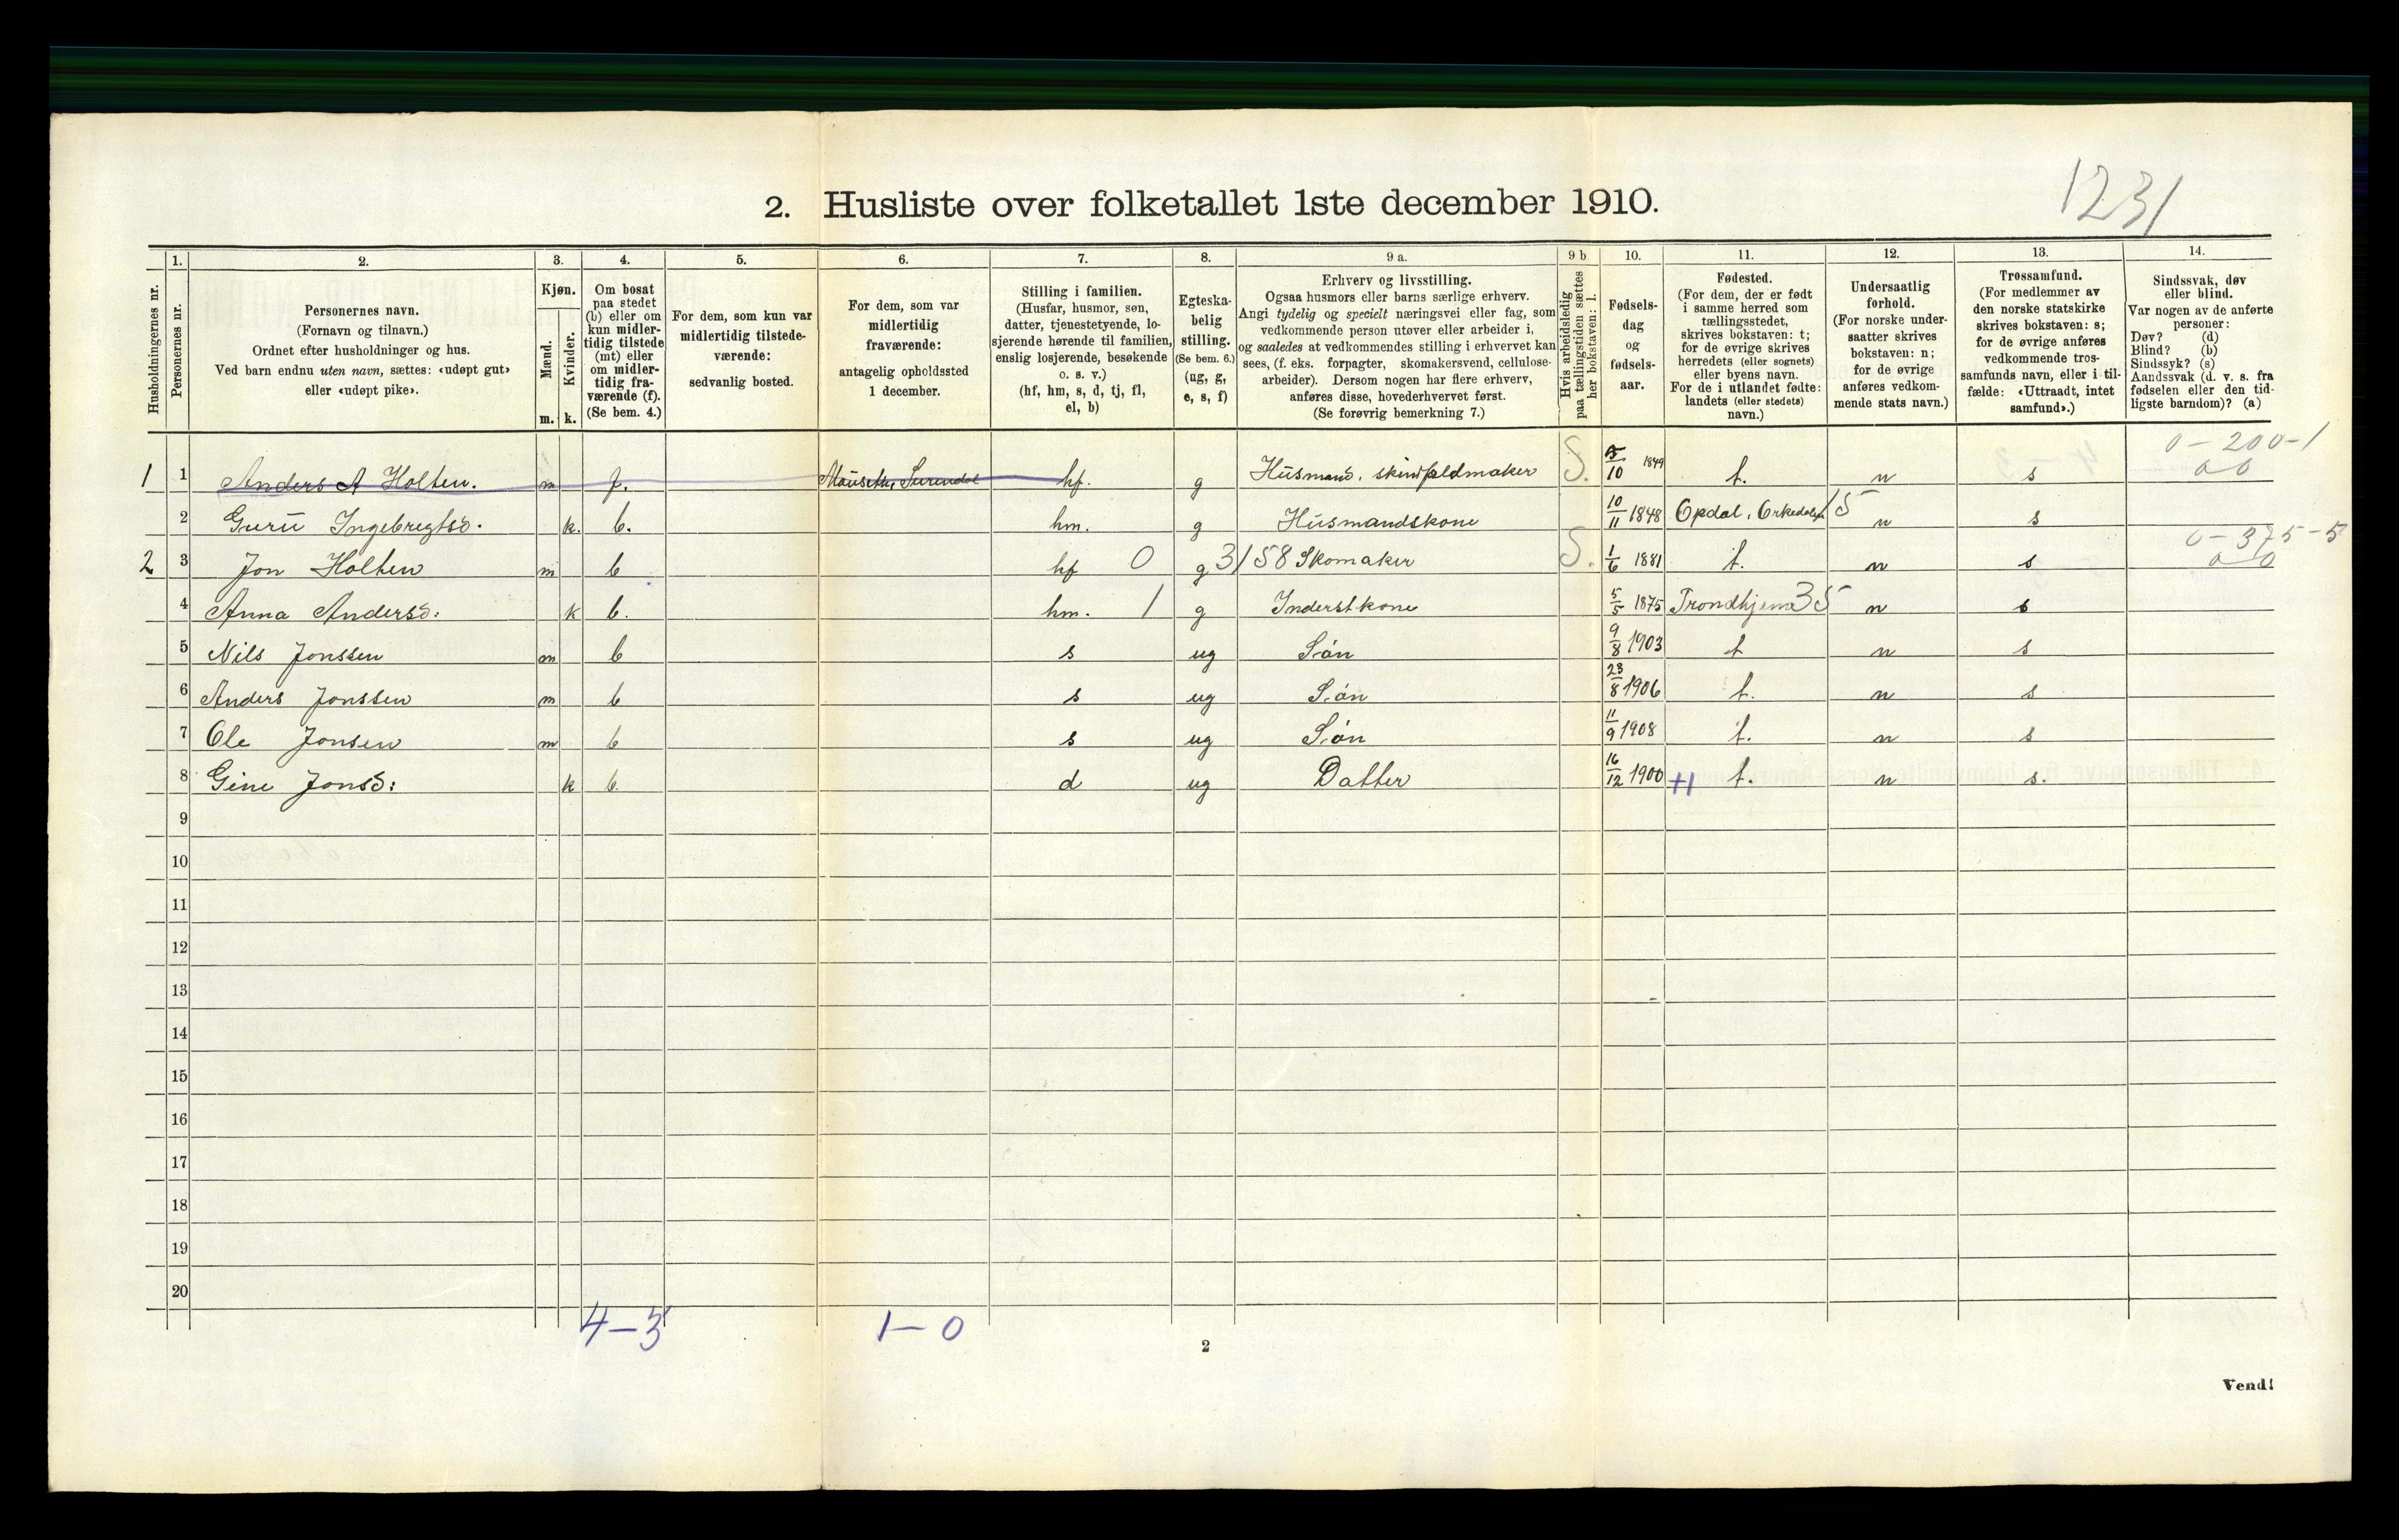 1231
2. Husliste over folketallet 1ste december 1910.
1. 2. 3. 4. 5. 6. 7. 8. 9 a. 9 b 10. 11. 12. 13. 14.
Husholdningernes nr.
Personernes nr.
Personernes navn.
(Fornavn og tilnavn.)
Ordnet efter husholdninger og hus.
Ved barn endnu uten navn, sættes: «udøpt gut»
eller «udøpt pike».
Kjøn.
Mænd.
Kvinder.
m. k.
Om bosat
paa stedet
(b) eller om
kun midler-
tidig tilstede
(mt) eller
om midler-
tidig fra-
værende (f).
(Se bem. 4.)
For dem, som kun var
midlertidig tilstede-
værende:
sedvanlig bosted.
For dem, som var
midlertidig
fraværende:
antagelig opholdssted
1 december.
Stilling i familien.
(Husfar, husmor, søn,
datter, tjenestetyende, lo-
sjerende hørende til familien,
enslig losjerende, besøkende
o. s. v.)
(hf, hm, s, d, tj, fl,
el, b)
Egteska-
belig
stilling.
(Se bem. 6.)
(ug, g,
e, s, f)
Erhverv og livsstilling.
Ogsaa husmors eller barns særlige erhverv.
Angi tydelig og specielt næringsvei eller fag, som
vedkommende person utøver eller arbeider i,
og saaledes at vedkommendes stilling i erhvervet kan
sees, (f. eks. forpagter, skomakersvend, cellulose-
arbeider). Dersom nogen har flere erhverv,
anføres disse, hovederhvervet først.
(Se forøvrig bemerkning 7.)
Hvis arbeidsledig
paa tællingstiden sættes
her bokstaven: l.
Fødsels-
dag
og
fødsels-
aar.
Fødested.
(For dem, der er født
i samme herred som
tællingsstedet,
skrives bokstaven: t;
for de øvrige skrives
herredets (eller sognets)
eller byens navn.
For de i utlandet fødte:
landets (eller stedets)
navn.)
Undersaatlig
forhold.
(For norske under-
saatter skrives
bokstaven: n;
for de øvrige
anføres vedkom-
mende stats navn.)
Trossamfund.
(For medlemmer av
den norske statskirke
skrives bokstaven: s;
for de øvrige anføres
vedkommende tros-
samfunds navn, eller i til-
fælde: «Uttraadt, intet
samfund».)
Sindssvak, døv
eller blind.
Var nogen av de anførte
personer:
Døv? (d)
Blind? (b)
Sindssyk? (s)
Aandssvak (d. v. s. fra
fødselen eller den tid-
ligste barndom)? (a)
0-200-1
1 1 Anders A Holten. m f. Surendal hf. g Husmand, skindfeldmaker S. 5/10 1849 t. n s 0 0
2 Guru Ingebregtsd. k. b. hm. g Husmandskone 10/11 1848 Opdal, Orkedalen 15 n s
0-375-5
2 3 Jon Holten m b hf 0 g 3158 Skomaker S. 1/6 1881 t. n s 0 0
4 Anna Andersd: k b. hm. 1 g Inderstkone 5/5 1875 Trondhjem 35 n s
5 Nils Jonssen m b s ug Søn 9/8 1903 t n s
6 Anders Jonssen m b s ug Søn 23/8 1906 t. n s
7 Ole Jonsen m b s ug Søn 11/9 1908 t. n s
8 Gine Jonsd: k b. d ug Datter 16/12 1900 +1 t. n s.
9
10
11
12
13
14
15
16
17
18
19
20
4-3 1-0
2
Vend!